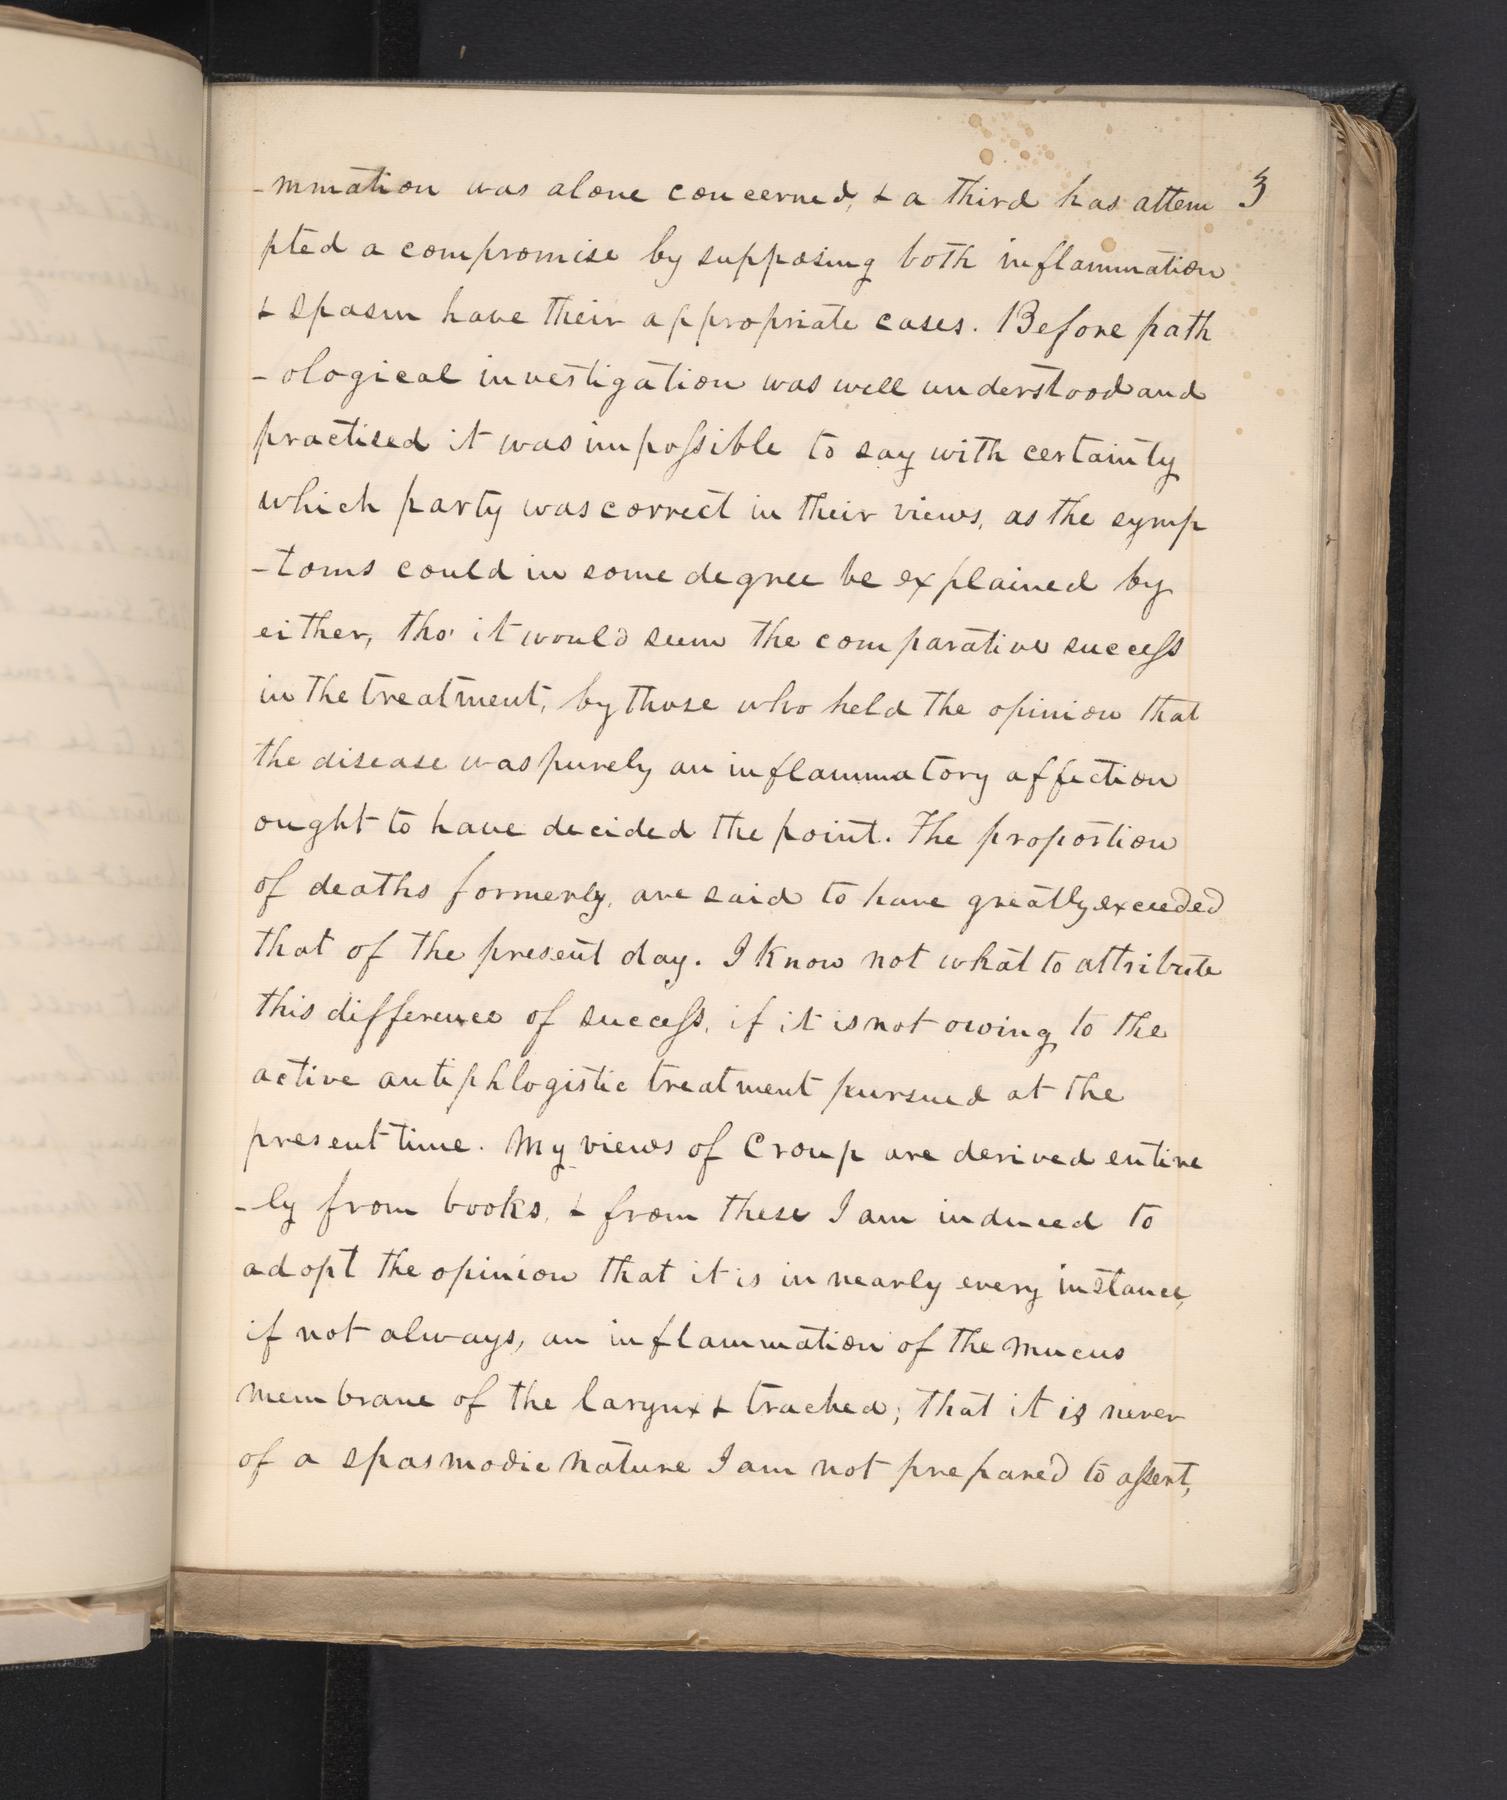 3
-mmation was alone concerned, & a third has attem
pted a compromise by supposing both inflammation
& spasm have their appropriate cases. Before path
-ological investigation was well understood and
practised it was impossible to say with certainty
which party was correct in their views, as the symp
-toms could in some degree be explained by
either, tho' it would seem the comparative success
in the treatment, by those who held the opinion that
the disease was purely an inflammatory affection
ought to have decided the point. The proportion
of deaths formerly, are said to have greatly exceeded
that of the present day. I know not what to attribute
this difference of success, if it is not owing to the
active antiphlogistic treatment pursued at the
present time. My views of Croup are derived entire
-ly from books, & from these I am induced to
adopt the opinion that it is in nearly every instance,
if not always, an inflammation of the mucus
membrane of the larynx & trachea; that it is never
of a spasmodic nature I am not prepared to assert,